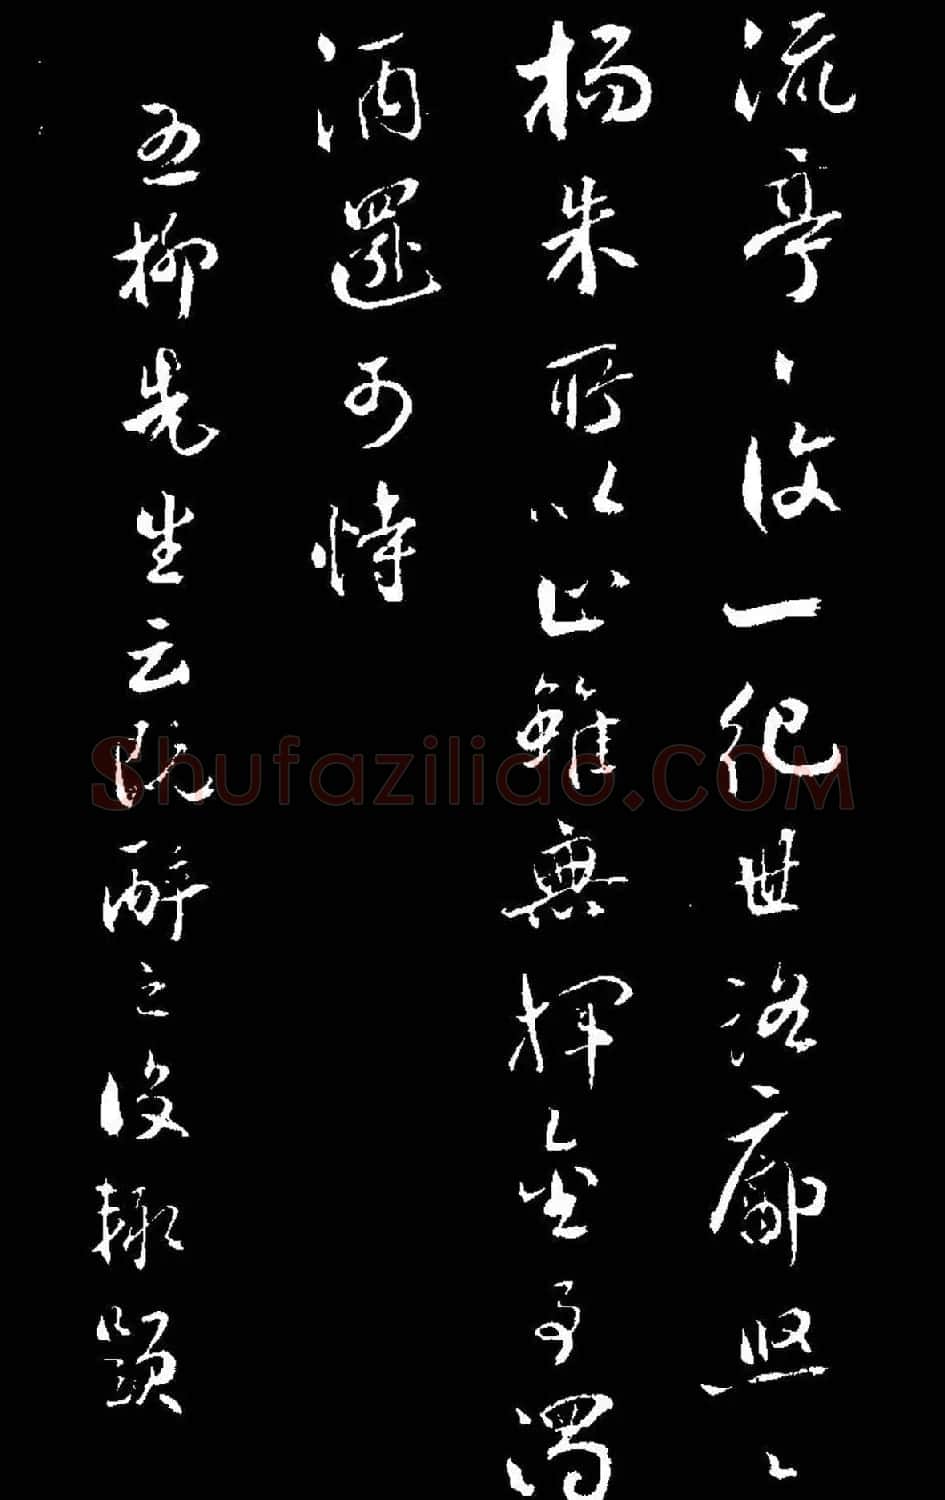 流亭〻復一紀世路廓悠〻
楊朱所以止雖無揮金事濁
酒還可恃
五柳先生云既醉之後輒題
Shufaziliao.COM